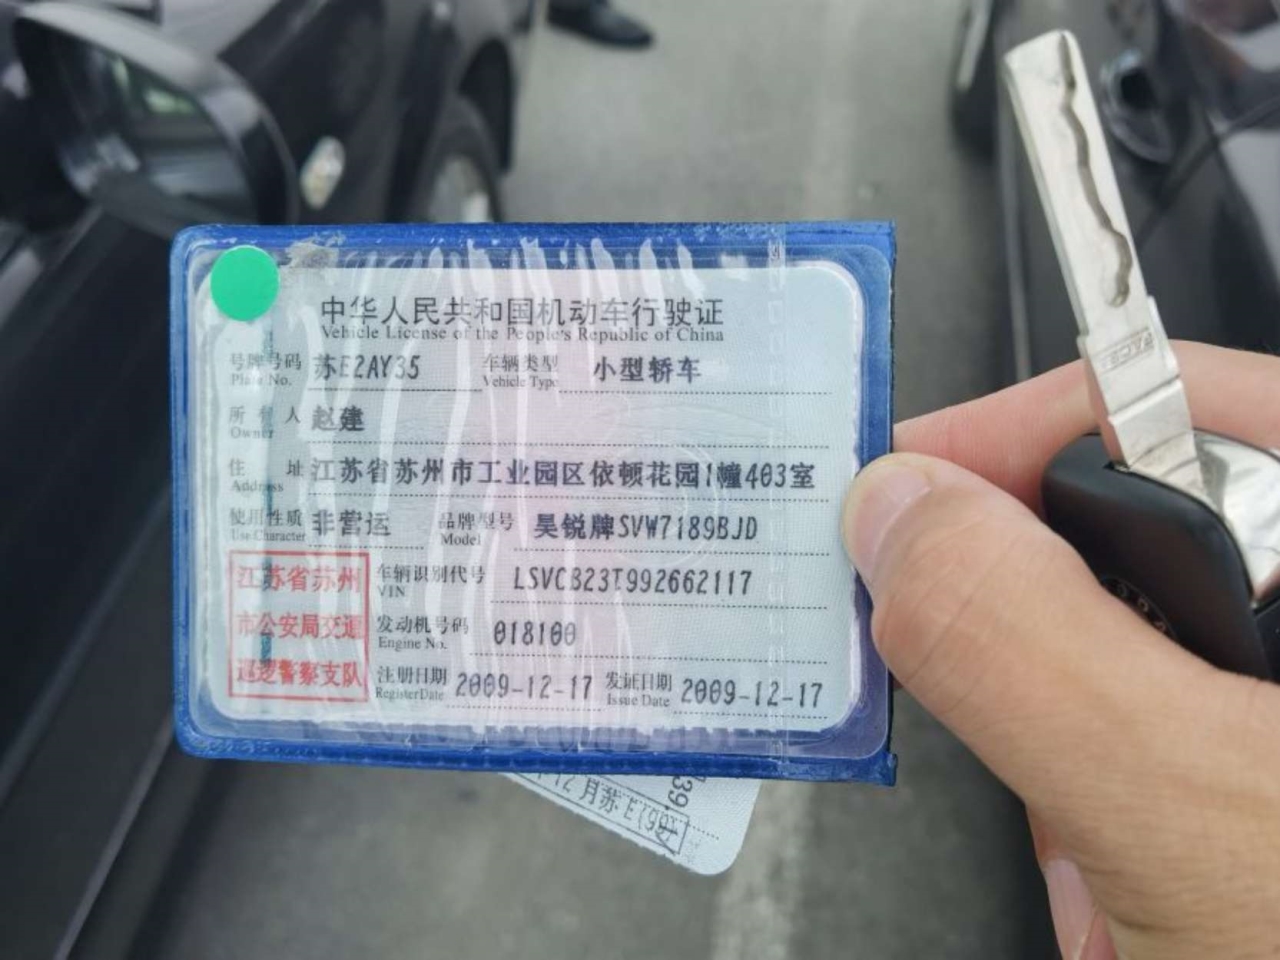 中华人民共和国机动车行驶证
Vehicle License of the People's Republic of China
号牌号码 苏E2AY35 车辆类型 小型轿车
Plate No. Vehicle Type
所有人 赵建
Owner
住址 江苏省苏州市工业园区依顿花园1幢403室
Address
使用性质 非营运 品牌型号 昊锐牌SVW7189BJD
Use Character Model
江苏省苏州
市公安局交通
巡逻警察支队
车辆识别代号 LSVCB23T992662117
VIN
发动机号码 018100
Engine No.
注册日期 2009-12-17 发证日期 2009-12-17
Register Date Issue Date
12月苏E(99)